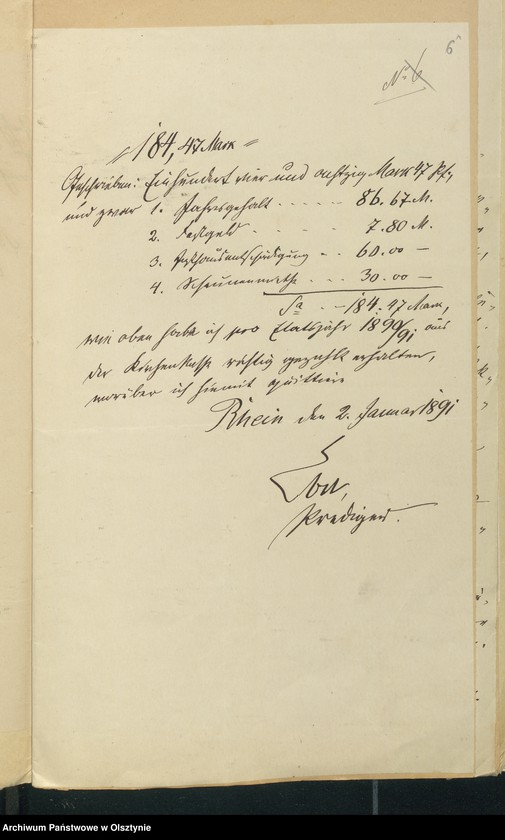 6
No 6
184,47 Mark
Geschrieben: Einhundert vier und achtzig Mark 47 Pf,
und zwar 1. Jahresgehalt - - - - - 86.67 M.
2. - - - - 7.80 M.
3. - - 60.00 —
4. Scheunenmiethe - - - 30.00 —
Sa - - 184.47 Mark,
wie oben habe ich pro Etatsjahr 1890/91 aus
der Kirchenkasse richtig gezahlt erhalten,
worüber ich hiemit quittire
Rhein den 2. Januar 1891
Prediger.
Archiwum Państwowe w Olsztynie